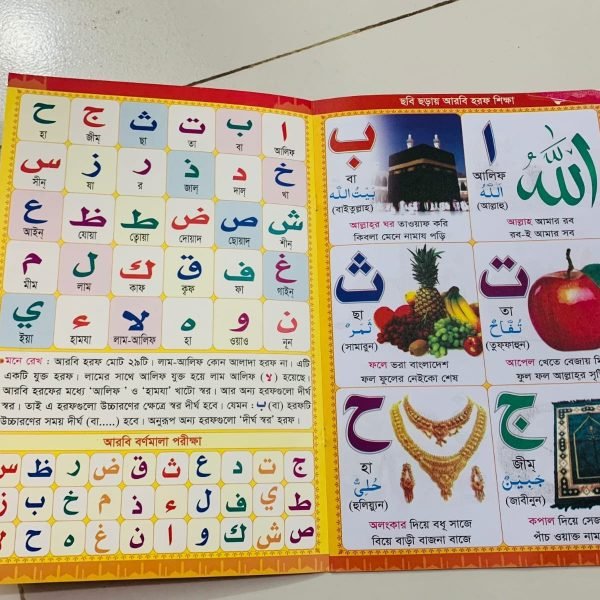 ا ب ت ث ج ح
হা জীম্ ছা তা বা আলিফ্
خ د ذ ر ز س
সীন্ যা র জাল্ দাল্ খা
ش ص ض ط ظ ع
আইন্ যোয়া ত্বোয়া দোয়াদ ছোয়াদ্ শীন্
غ ف ق ك ل م
মীম লাম কাফ ক্বফ ফা গাইন্
ن و ه لا ء ي
ইয়া হামযা লাম-আলিফ হা ওয়াও নূন
মনে রেখ : আরবি হরফ মোট ২৯টি। লাম-আলিফ কোন আলাদা হরফ না। এটি
একটি যুক্ত হরফ। লামের সাথে আলিফ যুক্ত হয়ে লাম আলিফ (لا) হয়েছে।
আরবি হরফের মধ্যে 'আলিফ' ও 'হামযা' খাটো স্বর। আর অন্য হরফগুলো দীর্ঘ
স্বর। তাই এ হরফগুলো উচ্চারণের ক্ষেত্রে স্বর দীর্ঘ হবে। যেমন : ب (বা) হরফটি
উচ্চারণের সময় দীর্ঘ (বা.....) হবে। অনুরূপ অন্য হরফগুলো 'দীর্ঘ স্বর' হরফ।
আরবি বর্ণমালা পরীক্ষা
ج ت د ع ث ق ض ر ظ س
ط ي ف ل ء ذ م خ ب ز
ص ش ك و ا ن غ ه ح
ছবি ছড়ায় আরবি হরফ শিক্ষা
ب
বা
بَيْتُ اللّٰه
(বাইতুল্লাহ)
আল্লাহর ঘর তাওয়াফ করি
কিবলা মেনে নামায পড়ি
ا
আলিফ
اَللّٰهُ
(আল্লাহু)
الله
আল্লাহ আমার রব
রব-ই আমার সব
ث
ছা
ثَمَرٌ
(সামারুন)
ফলে ভরা বাংলাদেশ
ফল ফুলের নেইকো শেষ
ت
তা
تُفَّاحٌ
(তুফফাহুন)
আপেল খেতে বেজায়
ফুল ফল আল্লাহর
ح
হা
حُلِيٌّ
(হুলিয়্যুন)
অলংকার দিয়ে বধূ সাজে
বিয়ে বাড়ী বাজনা বাজে
ج
জীম্
جَبِيْنٌ
(জাবীনুন)
কপাল দিয়ে
পাঁচ ওয়াক্ত